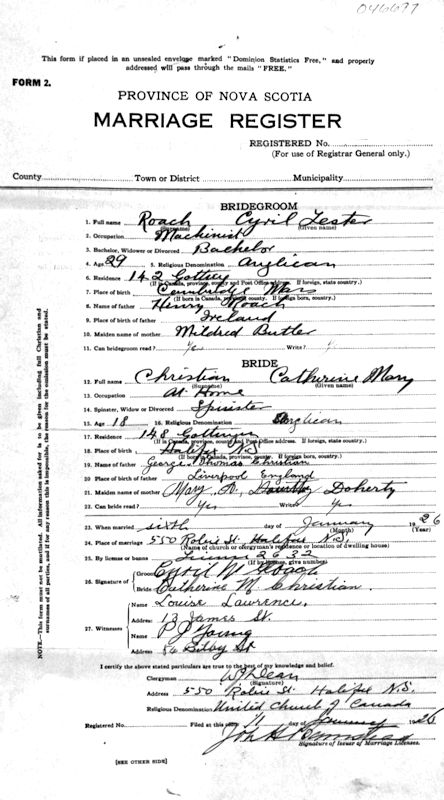 046697
This form if placed in an unsealed envelope marked "Dominion Statistics Free," and properly
addressed will pass through the mails "FREE."
FORM 2.
PROVINCE OF NOVA SCOTIA
MARRIAGE REGISTER
REGISTERED No.
(For use of Registrar General only.)
County Town or District Municipality
BRIDEGROOM
1. Full name Roach Cyril Lester
(Surname) (Given name)
2. Occupation Machinist
3. Bachelor, Widower or Divorced Bachelor
4. Age 29 5. Religious Denomination Anglican
6. Residence 142 Gottingen
(If in Canada, province, county and Post Office Address. If foreign, state country.)
7. Place of birth Cambridge Mass
(If born in Canada, province, county. If foreign born, country.)
8. Name of father Henry Roach
9. Place of birth of father Ireland
10. Maiden name of mother Mildred Butler
11. Can bridegroom read? Yes Write? Y
BRIDE
12. Full name Christian Catherine Mary
(Surname) (Given name)
13. Occupation At Home
14. Spinster, Widow or Divorced Spinster
15. Age 18 16. Religious Denomination Anglican
17. Residence 148 Gottingen
(If in Canada, province, county and Post Office address. If foreign, state country.)
18. Place of birth Halifax N.S.
(If born in Canada, province, county. If foreign born, country.)
19. Name of father George Thomas Christian
20. Place of birth of father Liverpool England
21. Maiden name of mother Mary A. Doherty
22. Can bride read? Yes Write Yes
23. When married sixth day of January 1926
(Month) (Year)
24. Place of marriage 550 Robie St. Halifax N.S.
(Name of church or clergyman's residence or location of dwelling house)
25. By license or banns License 2632
(If by license, give number)
26. Signature of Groom Cyril Roach
Bride Catherine M. Christian.
27. Witnesses Name Louise Lawrence.
Address: 13 James St.
Name P J Young
Address: 86 Bilby St
I certify the above stated particulars are true to the best of my knowledge and belief.
Clergyman WJ Dean
(Signature)
Address 550 Robie St. Halifax N.S.
Religious Denomination United Church of Canada
Registered No. Filed at this office 11 day of January 1926
Signature of Issuer of Marriage Licenses.
(SEE OTHER SIDE)
NOTE.—This form must not be mutilated. All information asked for is to be given including full Christian and
surnames of all parties, and if for any reason this is impossible, the reason for the omission must be stated.